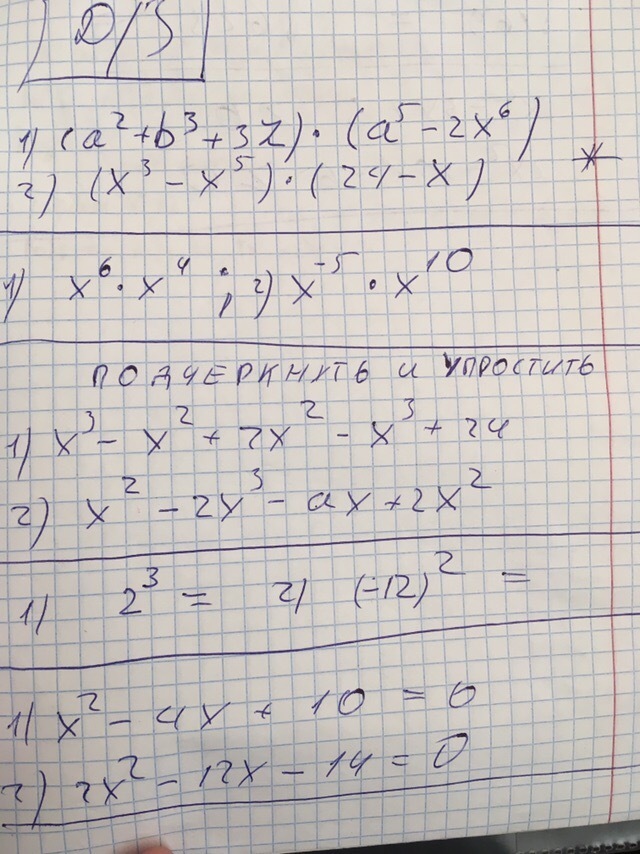 Д/З
1) (a² + b³ + 3z) · (a⁵ - 2x⁶)
2) (x³ - x⁵) · (24 - x) *
1) x⁶ · x⁴ ; 2) x⁻⁵ · x¹⁰
ПОДЧЕРКНУТЬ И УПРОСТИТЬ
1) x³ - x² + 2x² - x³ + 24
2) x² - 2x³ - ax + 2x²
1) 2³ = 2) (-12)² =
1) x² - 4x + 10 = 0
2) 2x² - 12x - 14 = 0